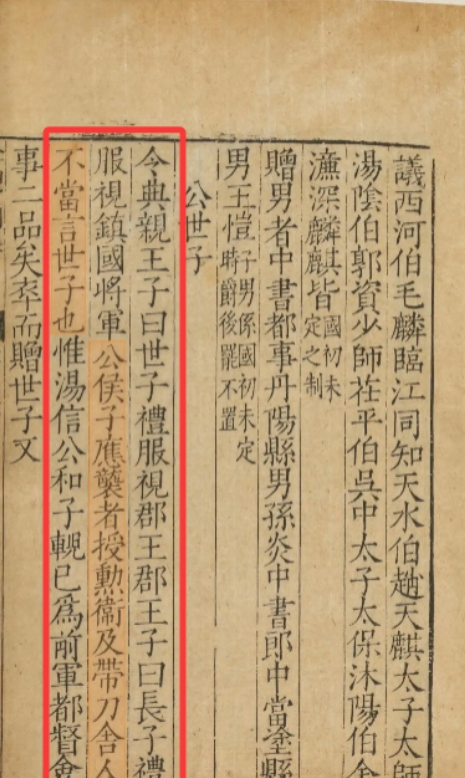 議西河伯毛麟臨江同知天水伯趙天麒太子太師
湯陰伯郭資少師茌平伯吳中太子太保沐陽伯金
濂深麟麒皆國初未定之制
贈男者中書都事丹陽縣男孫炎中書郎中當塗縣
男王愷子男係國初未定時爵後罷不置
公世子
今典親王子曰世子禮服視郡王郡王子曰長子禮
服視鎮國將軍公侯子應襲者授勲衞及帶刀舍人
不當言世子也惟湯信公和子輗已爲前軍都督僉
事二品矣卒而贈世子又